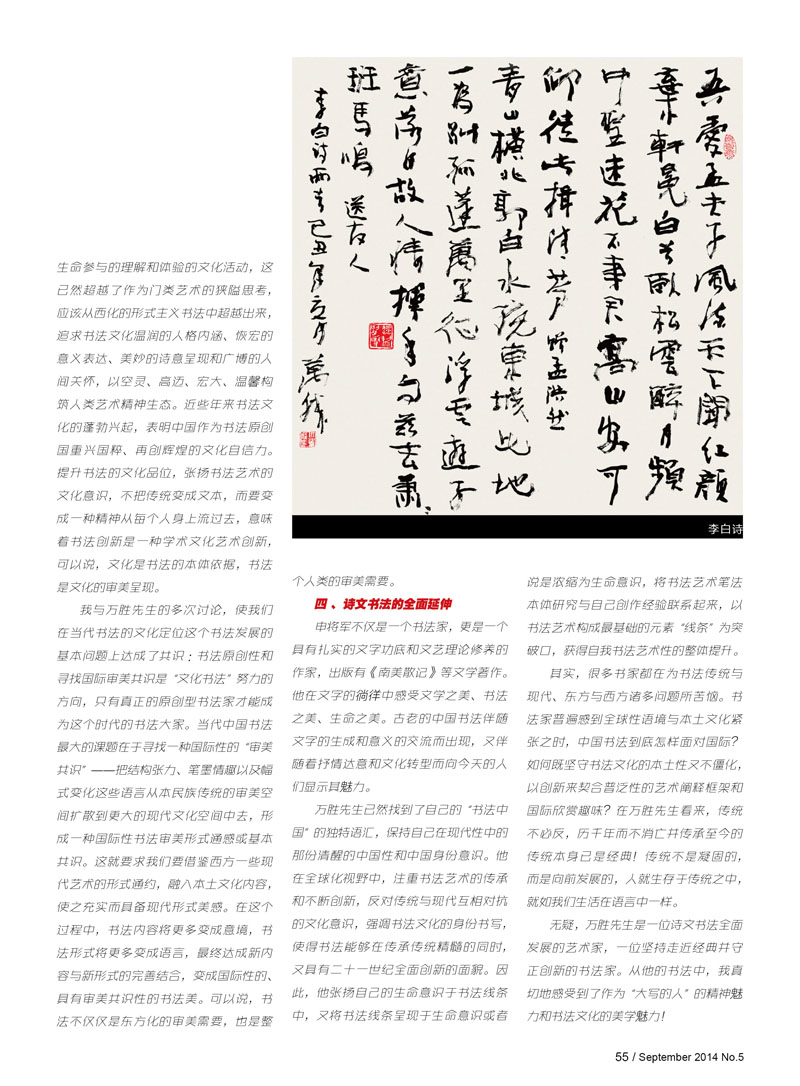 吾愛孟夫子風流天下聞紅顏
棄軒冕白首臥松雲醉月頻
中聖迷花不事君高山安可
仰徒此揖清芬 贈孟浩然
青山橫北郭白水繞東城此地
一為別孤蓬萬里征浮雲遊子
意落日故人情揮手自茲去蕭々
班馬鳴 送友人
李白诗两首己丑年 萬勝
李白诗
生命参与的理解和体验的文化活动，这
已然超越了作为门类艺术的狭隘思考，
应该从西化的形式主义书法中超越出来，
追求书法文化温润的人格内涵、恢宏的
意义表达、美妙的诗意呈现和广博的人
间关怀，以空灵、高迈、宏大、温馨构
筑人类艺术精神生态。近些年来书法文
化的蓬勃兴起，表明中国作为书法原创
国重兴国粹、再创辉煌的文化自信力。
提升书法的文化品位，张扬书法艺术的
文化意识，不把传统变成文本，而要变
成一种精神从每个人身上流过去，意味
着书法创新是一种学术文化艺术创新，
可以说，文化是书法的本体依据，书法
是文化的审美呈现。
我与万胜先生的多次讨论，使我们
在当代书法的文化定位这个书法发展的
基本问题上达成了共识：书法原创性和
寻找国际审美共识是“文化书法”努力的
方向，只有真正的原创型书法家才能成
为这个时代的书法大家。当代中国书法
最大的课题在于寻找一种国际性的“审美
共识”——把结构张力、笔墨情趣以及幅
式变化这些语言从本民族传统的审美空
间扩散到更大的现代文化空间中去，形
成一种国际性书法审美形式通感或基本
共识。这就要求我们要借鉴西方一些现
代艺术的形式通约，融入本土文化内容，
使之充实而具备现代形式美感。在这个
过程中，书法内容将更多变成意境，书
法形式将更多变成语言，最终达成新内
容与新形式的完善结合，变成国际性的、
具有审美共识性的书法美。可以说，书
法不仅仅是东方化的审美需要，也是整
个人类的审美需要。
四、诗文书法的全面延伸
申将军不仅是一个书法家，更是一个
具有扎实的文字功底和文艺理论修养的
作家，出版有《南美散记》等文学著作。
他在文字的徜徉中感受文学之美、书法
之美、生命之美。古老的中国书法伴随
文字的生成和意义的交流而出现，又伴
随着抒情达意和文化转型而向今天的人
们显示其魅力。
万胜先生已然找到了自己的“书法中
国”的独特语汇，保持自己在现代性中的
那份清醒的中国性和中国身份意识。他
在全球化视野中，注重书法艺术的传承
和不断创新，反对传统与现代互相对抗
的文化意识，强调书法文化的身份书写，
使得书法能够在传承传统精髓的同时，
又具有二十一世纪全面创新的面貌。因
此，他张扬自己的生命意识于书法线条
中，又将书法线条呈现于生命意识或者
说是浓缩为生命意识，将书法艺术笔法
本体研究与自己创作经验联系起来，以
书法艺术构成最基础的元素“线条”为突
破口，获得自我书法艺术性的整体提升。
其实，很多书家都在为书法传统与
现代、东方与西方诸多问题所苦恼。书
法家普遍感到全球性语境与本土文化紧
张之时，中国书法到底怎样面对国际？
如何既坚守书法文化的本土性又不僵化，
以创新来契合普泛性的艺术阐释框架和
国际欣赏趣味？在万胜先生看来，传统
不必反，历千年而不消亡并传承至今的
传统本身已是经典！传统不是凝固的，
而是向前发展的，人就生存于传统之中，
就如我们生活在语言中一样。
无疑，万胜先生是一位诗文书法全面
发展的艺术家，一位坚持走近经典并守
正创新的书法家。从他的书法中，我真
切地感受到了作为“大写的人”的精神魅
力和书法文化的美学魅力！
55 / September 2014 No.5